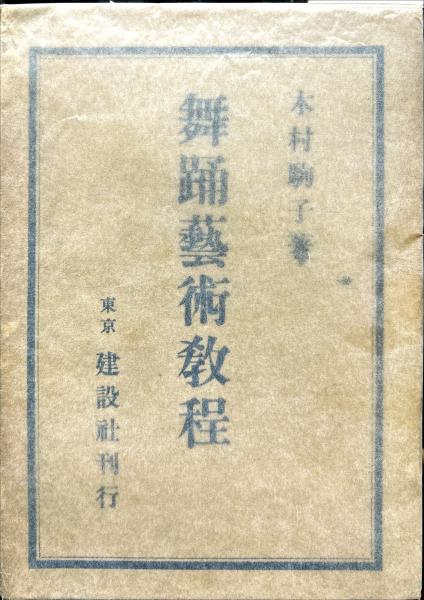 木村駒子著
舞踊藝術教程
東京 建設社刊行